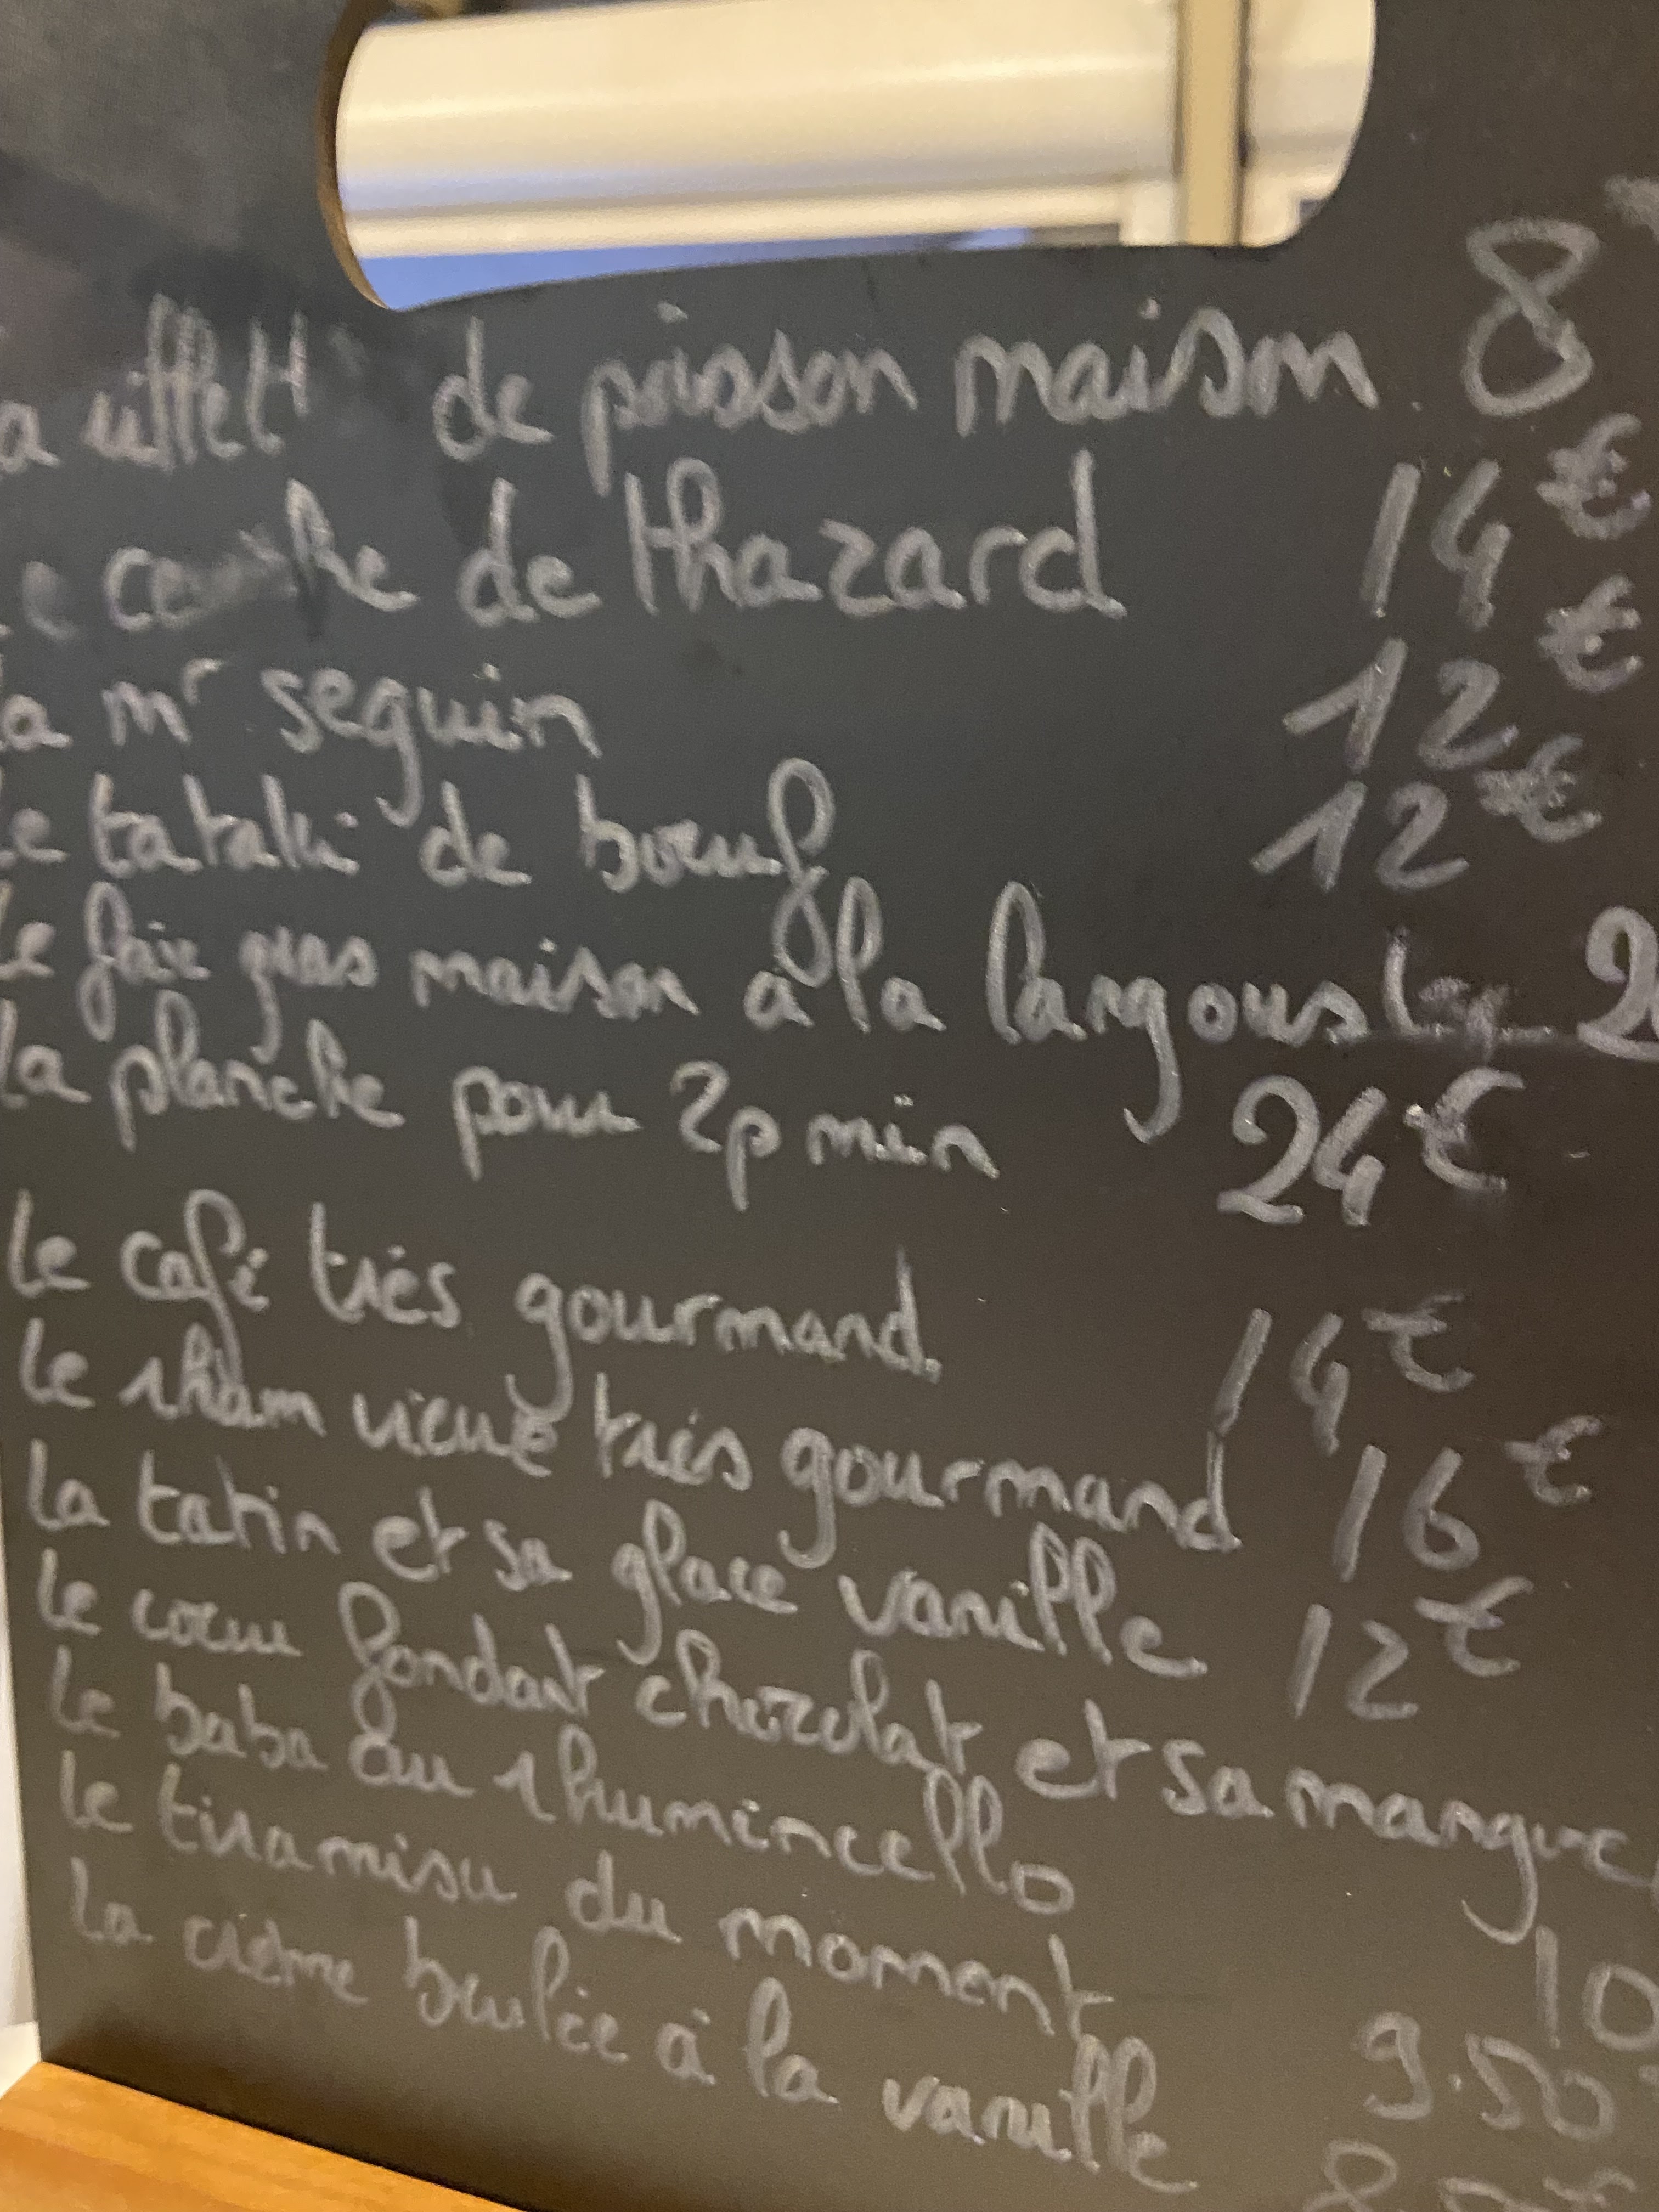 de poisson maison 8
de thazard 14€
la mr seguin 12€
Le tataki de bœuf 12€
Le foie gras maison à la langouste
la planche pour 2p min 24€
Le café très gourmand 14€
Le rhum vieux très gourmand 16€
La tatin et sa glace vanille 12€
Le cœur fondant chocolat et sa mangue
Le baba au rhumincello 10
Le tiramisu du moment 9.50
La crème brulée à la vanille